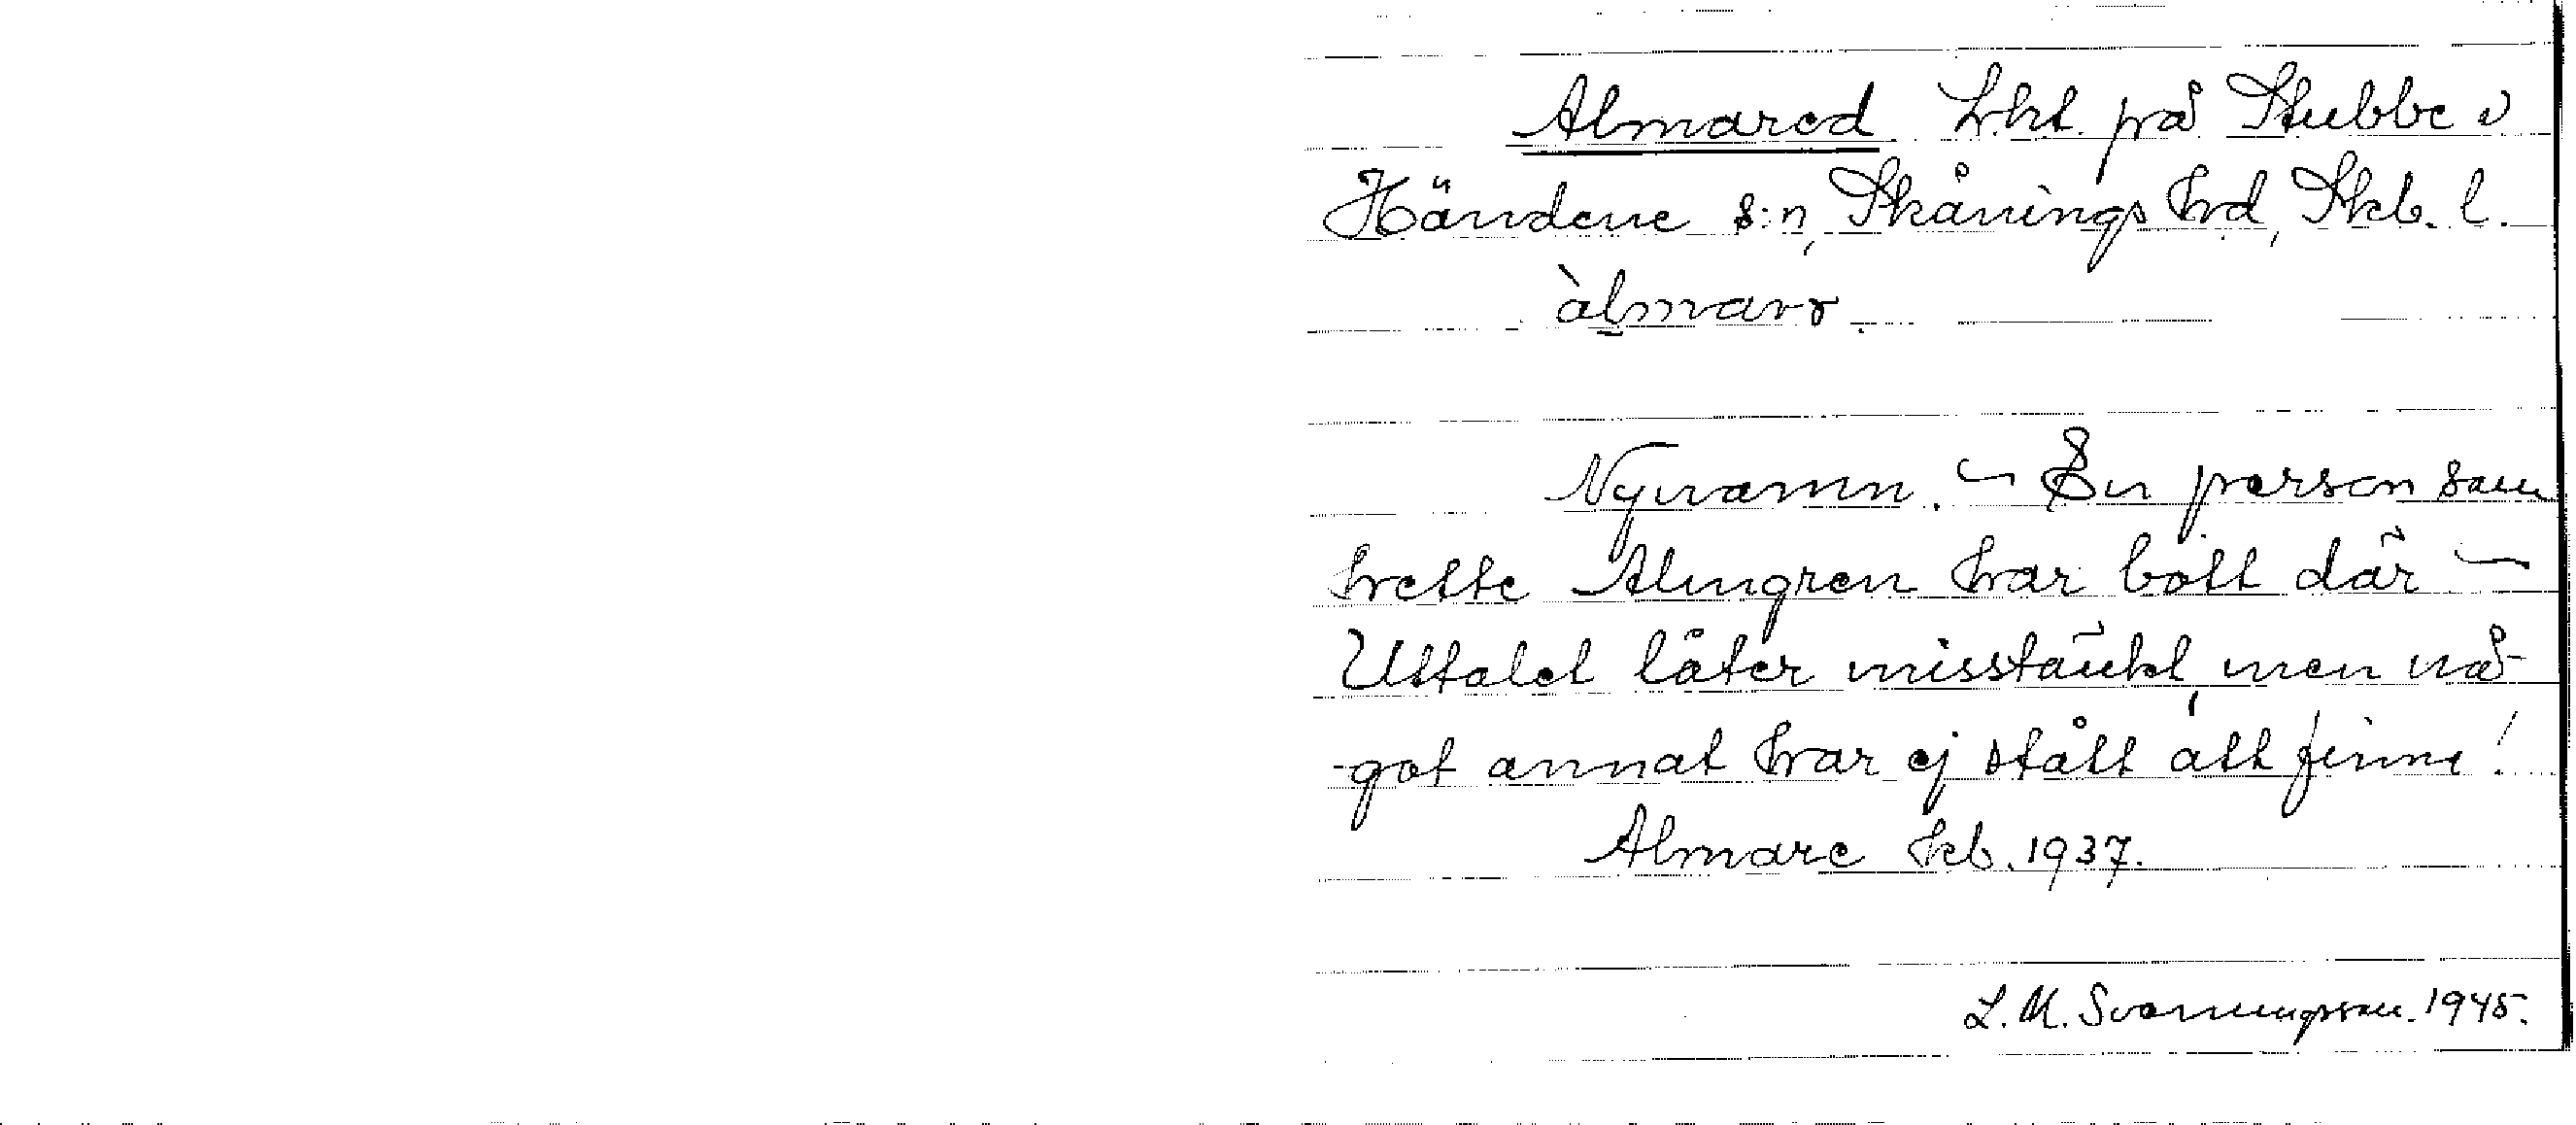 Almared Lht. på Stubbe i
Händene s:n, Skånings hd, Skb. l.
àlmarə.
Nynamn. – En person som
hette Almgren har bott där –
Uttalet låter misstänkt, men nå-
got annat har ej stått att finna!
Almare kb. 1937.
L. M. Svanungsson. 1945.